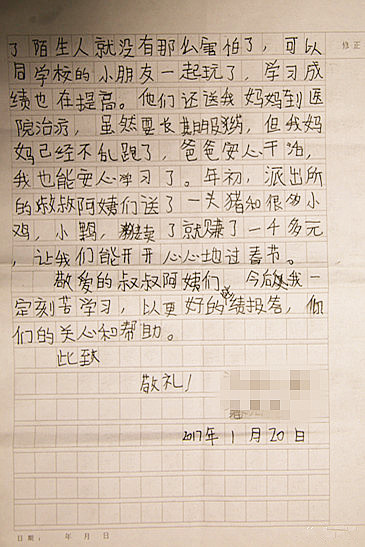 了陌生人就没有那么害怕了，可以
修正
同学校的小朋友一起玩了，学习成
绩也在提高。他们还送我妈妈到医
院治疗，虽然要长期服药，但我妈
妈已经不乱跑了，爸爸安心干活，
我也能安心学习了。年初，派出所
的叔叔阿姨们送了一头猪和很多小
鸡，小鸭，卖了就赚了一千多元
，让我们能开开心心地过春节。
敬爱的叔叔阿姨们，今后我一
定刻苦学习，以更好的成绩报答，你
们的关心和帮助。
此致
敬礼！
2017年1月20日
日期： 年 月 日